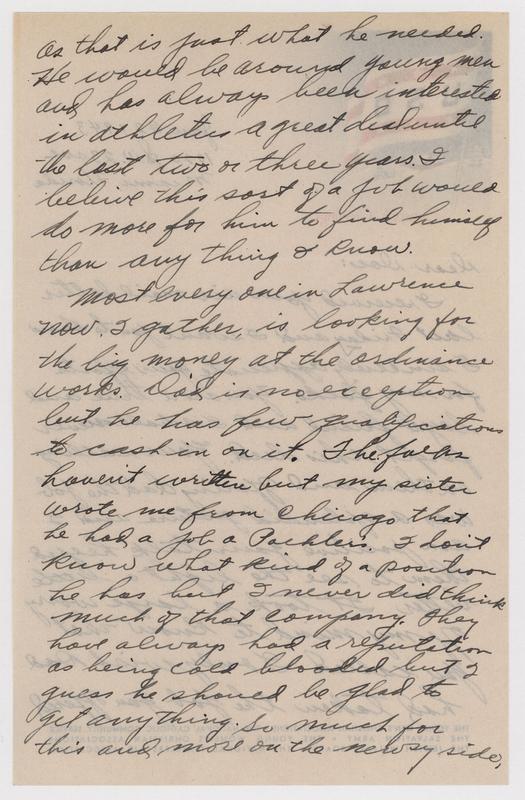 as that is just what he needed.
He would be around young men
and has always been interested
in athletics a great deal until
the last two or three years. I
believe this sort of a job would
do more for him to find himself
than any thing I know.
Most every one in Lawrence
now, I gather, is looking for
the big money at the ordinance
works. Dad is no exception
but he has few qualifications
to cash in on it. The folks
haven't written but my sister
wrote me from Chicago that
he had a job a Packers. I don't
know what kind of a position
he has but I never did think
much of that company. They
have always had a reputation
as being cold blooded but I
guess he should be glad to
get anything. So much for
this and more on the newsy side,